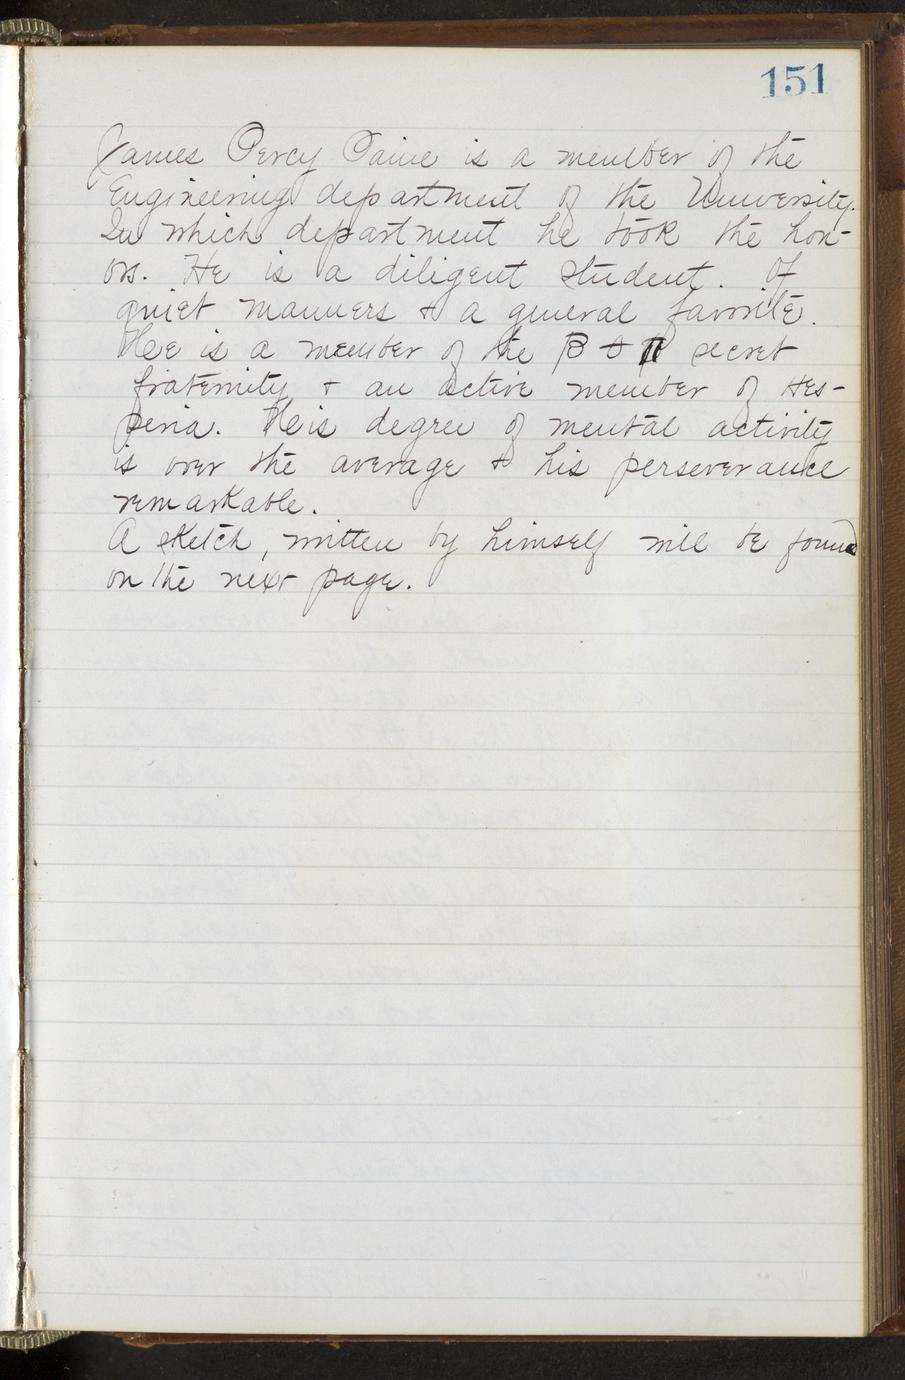 151
James Percy Paine is a member of the
Engineering department of the University.
In which department he took the hon-
ors. He is a diligent student. Of
quiet manners & a general favorite.
He is a member of the Β Θ Π secret
fraternity & an active member of Hes-
peria. His degree of mental activity
is over the average & his perseverance
remarkable.
A sketch, written by himself will be found
on the next page.